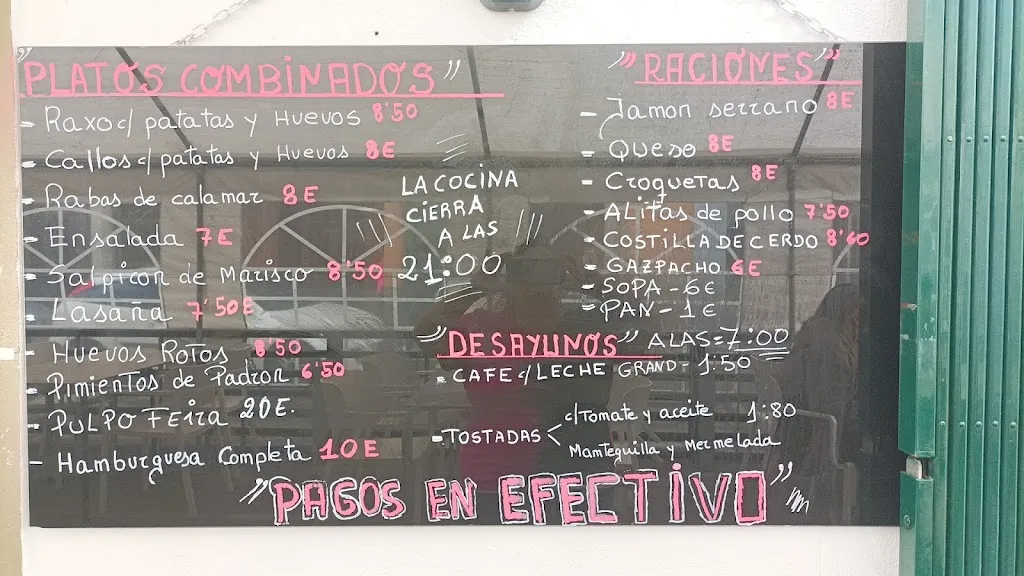 "PLATOS COMBINADOS"
- Raxo c/ patatas y Huevos 8'50
- Callos c/patatas y Huevos 8E
- Rabas de calamar 8E
- Ensalada 7E
- Salpicon de Marisco 8'50
- Lasaña 7'50E
- Huevos Rotos 8'50
- Pimientos de Padron 6'50
- PULPO Feira 20E.
- Hamburguesa Completa 10E
LA COCINA
CIERRA
A LAS
21:00
"RACIONES"
- Jamon serrano 8E
- Queso 8E
- Croquetas 8E
- ALitas de pollo 7'50
- COSTILLA DE CERDO 8'60
- GAZPACHO 6E
- SOPA - 6€
- PAN - 1€
"DESAYUNOS" A LAS = 7:00
- CAFE c/LECHE GRAND - 1:50
- TOSTADAS < c/Tomate y aceite 1:80
Manteguilla y Mermelada
"PAGOS EN EFECTIVO"